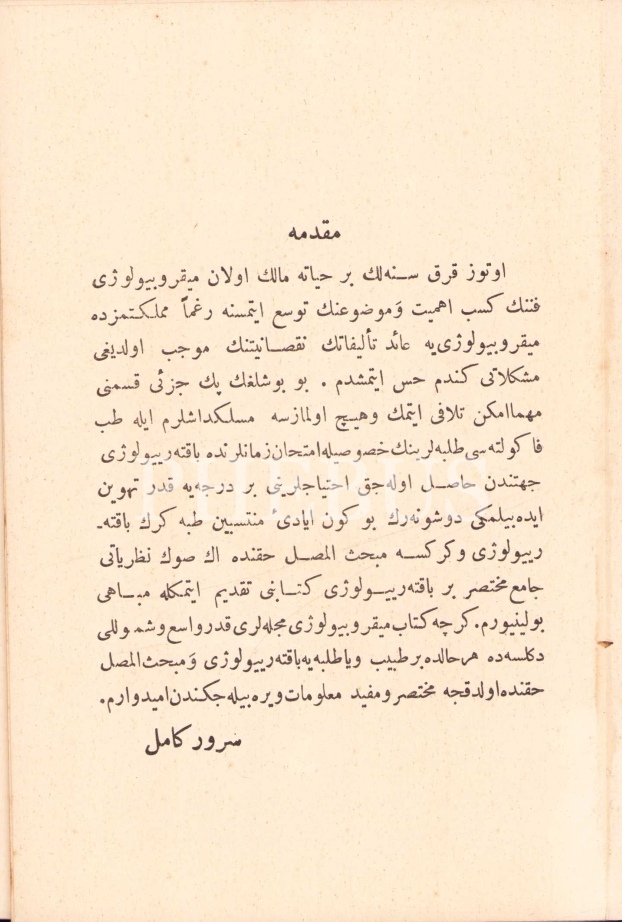 مقدمه
اوتوز قرق سنه‌لك بر حياته مالك اولان ميقروبيولوژى
فننك كسب اهميت وَموضوعنك توسع ايتمسنه رغماً مملكتمزده
ميقروبيولوژى‌يه عائد تأليفاتك نقصانيتنك موجب اولديغى
مشكلاتى كندم حس ايتمشدم . بو بوشلغك پك جزئى قسمنى
مهماامكن تلافى ايتمك وهيچ اولمازسه مسلكداشلرم ايله طب
فاكولته‌سى طلبه‌لرينك خصوصيله امتحان زمانلرنده باقته‌ريولوژى
جهتندن حاصل اوله‌جق احتياجلرينى بر درجه‌يه قدر تهوين
ايده‌بيلمكى دوشونه‌رك بو كون ايادىٔ منتسبين طبه كرك باقته-
رييولوژى وكركسه مبحث المصل حقنده اك صوك نظرياتى
جامع مختصر بر باقته‌رييولوژى كتابنى تقديم ايتمكله مباهى
بولينيورم. كرچه كتاب ميقروبيولوژى مجله‌لرى قدر واسع وشموللى
دكلسه‌ده هرحالده بر طبيب وياطلبه‌يه باقته‌رييولوژى وَمبحث المصل
حقنده اولدقجه مختصر ومفيد معلومات ويره‌بيله‌جكندن اميدوارم.
سرور كامل